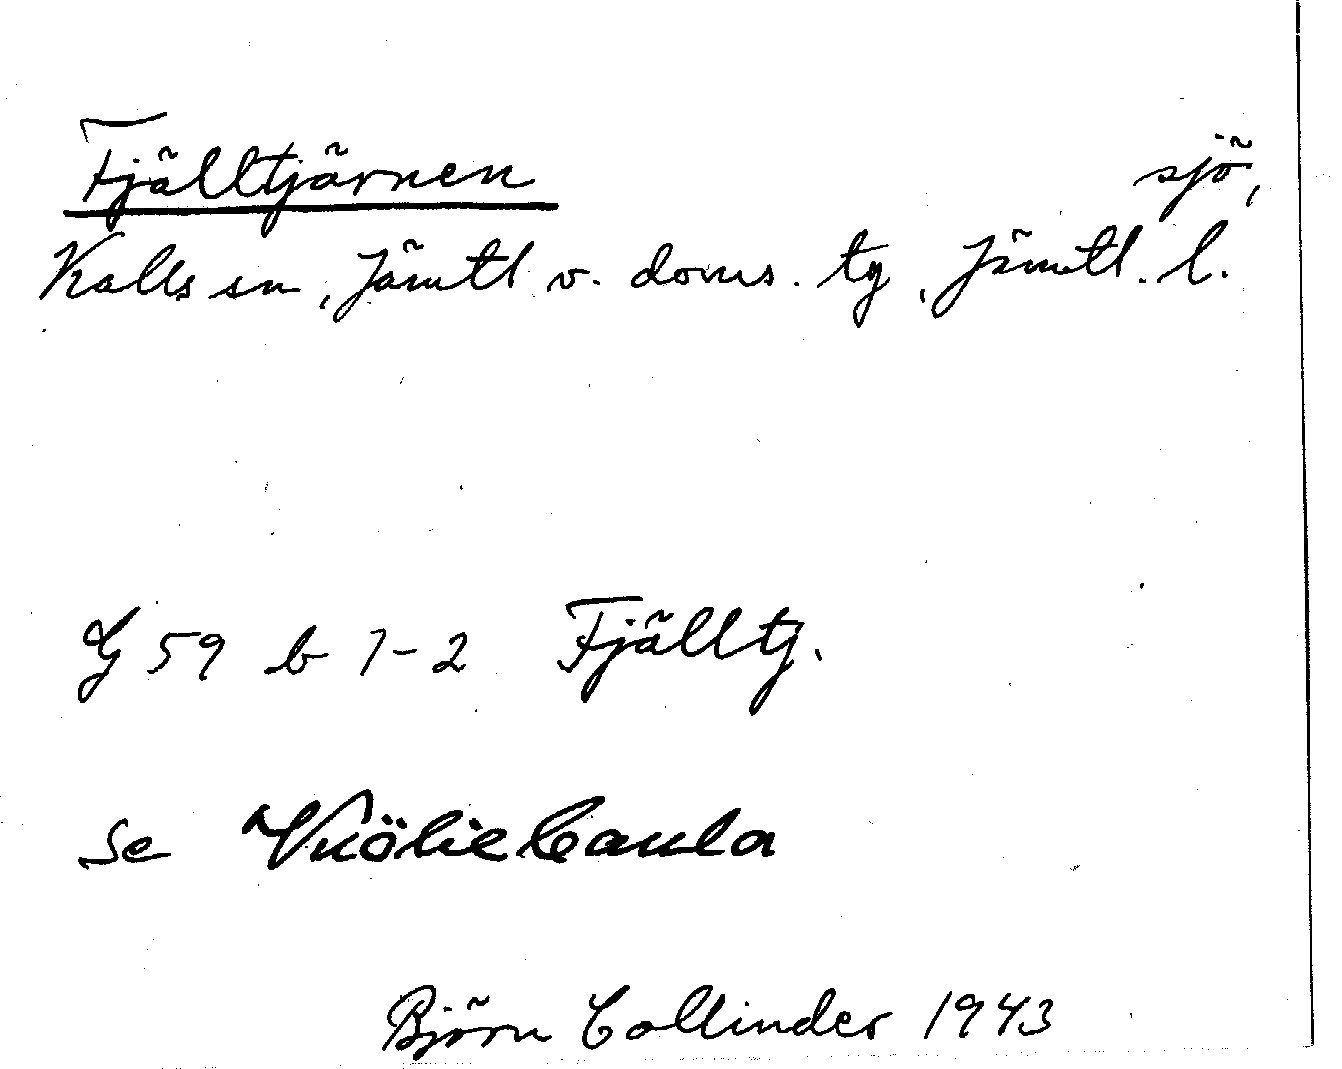 Fjälltjärnen sjö,
Kalls sn, Jämtl v. doms. tg, Jämtl. l.
G 59 b 1-2 Fjälltj.
se
Björn Collinder 1943